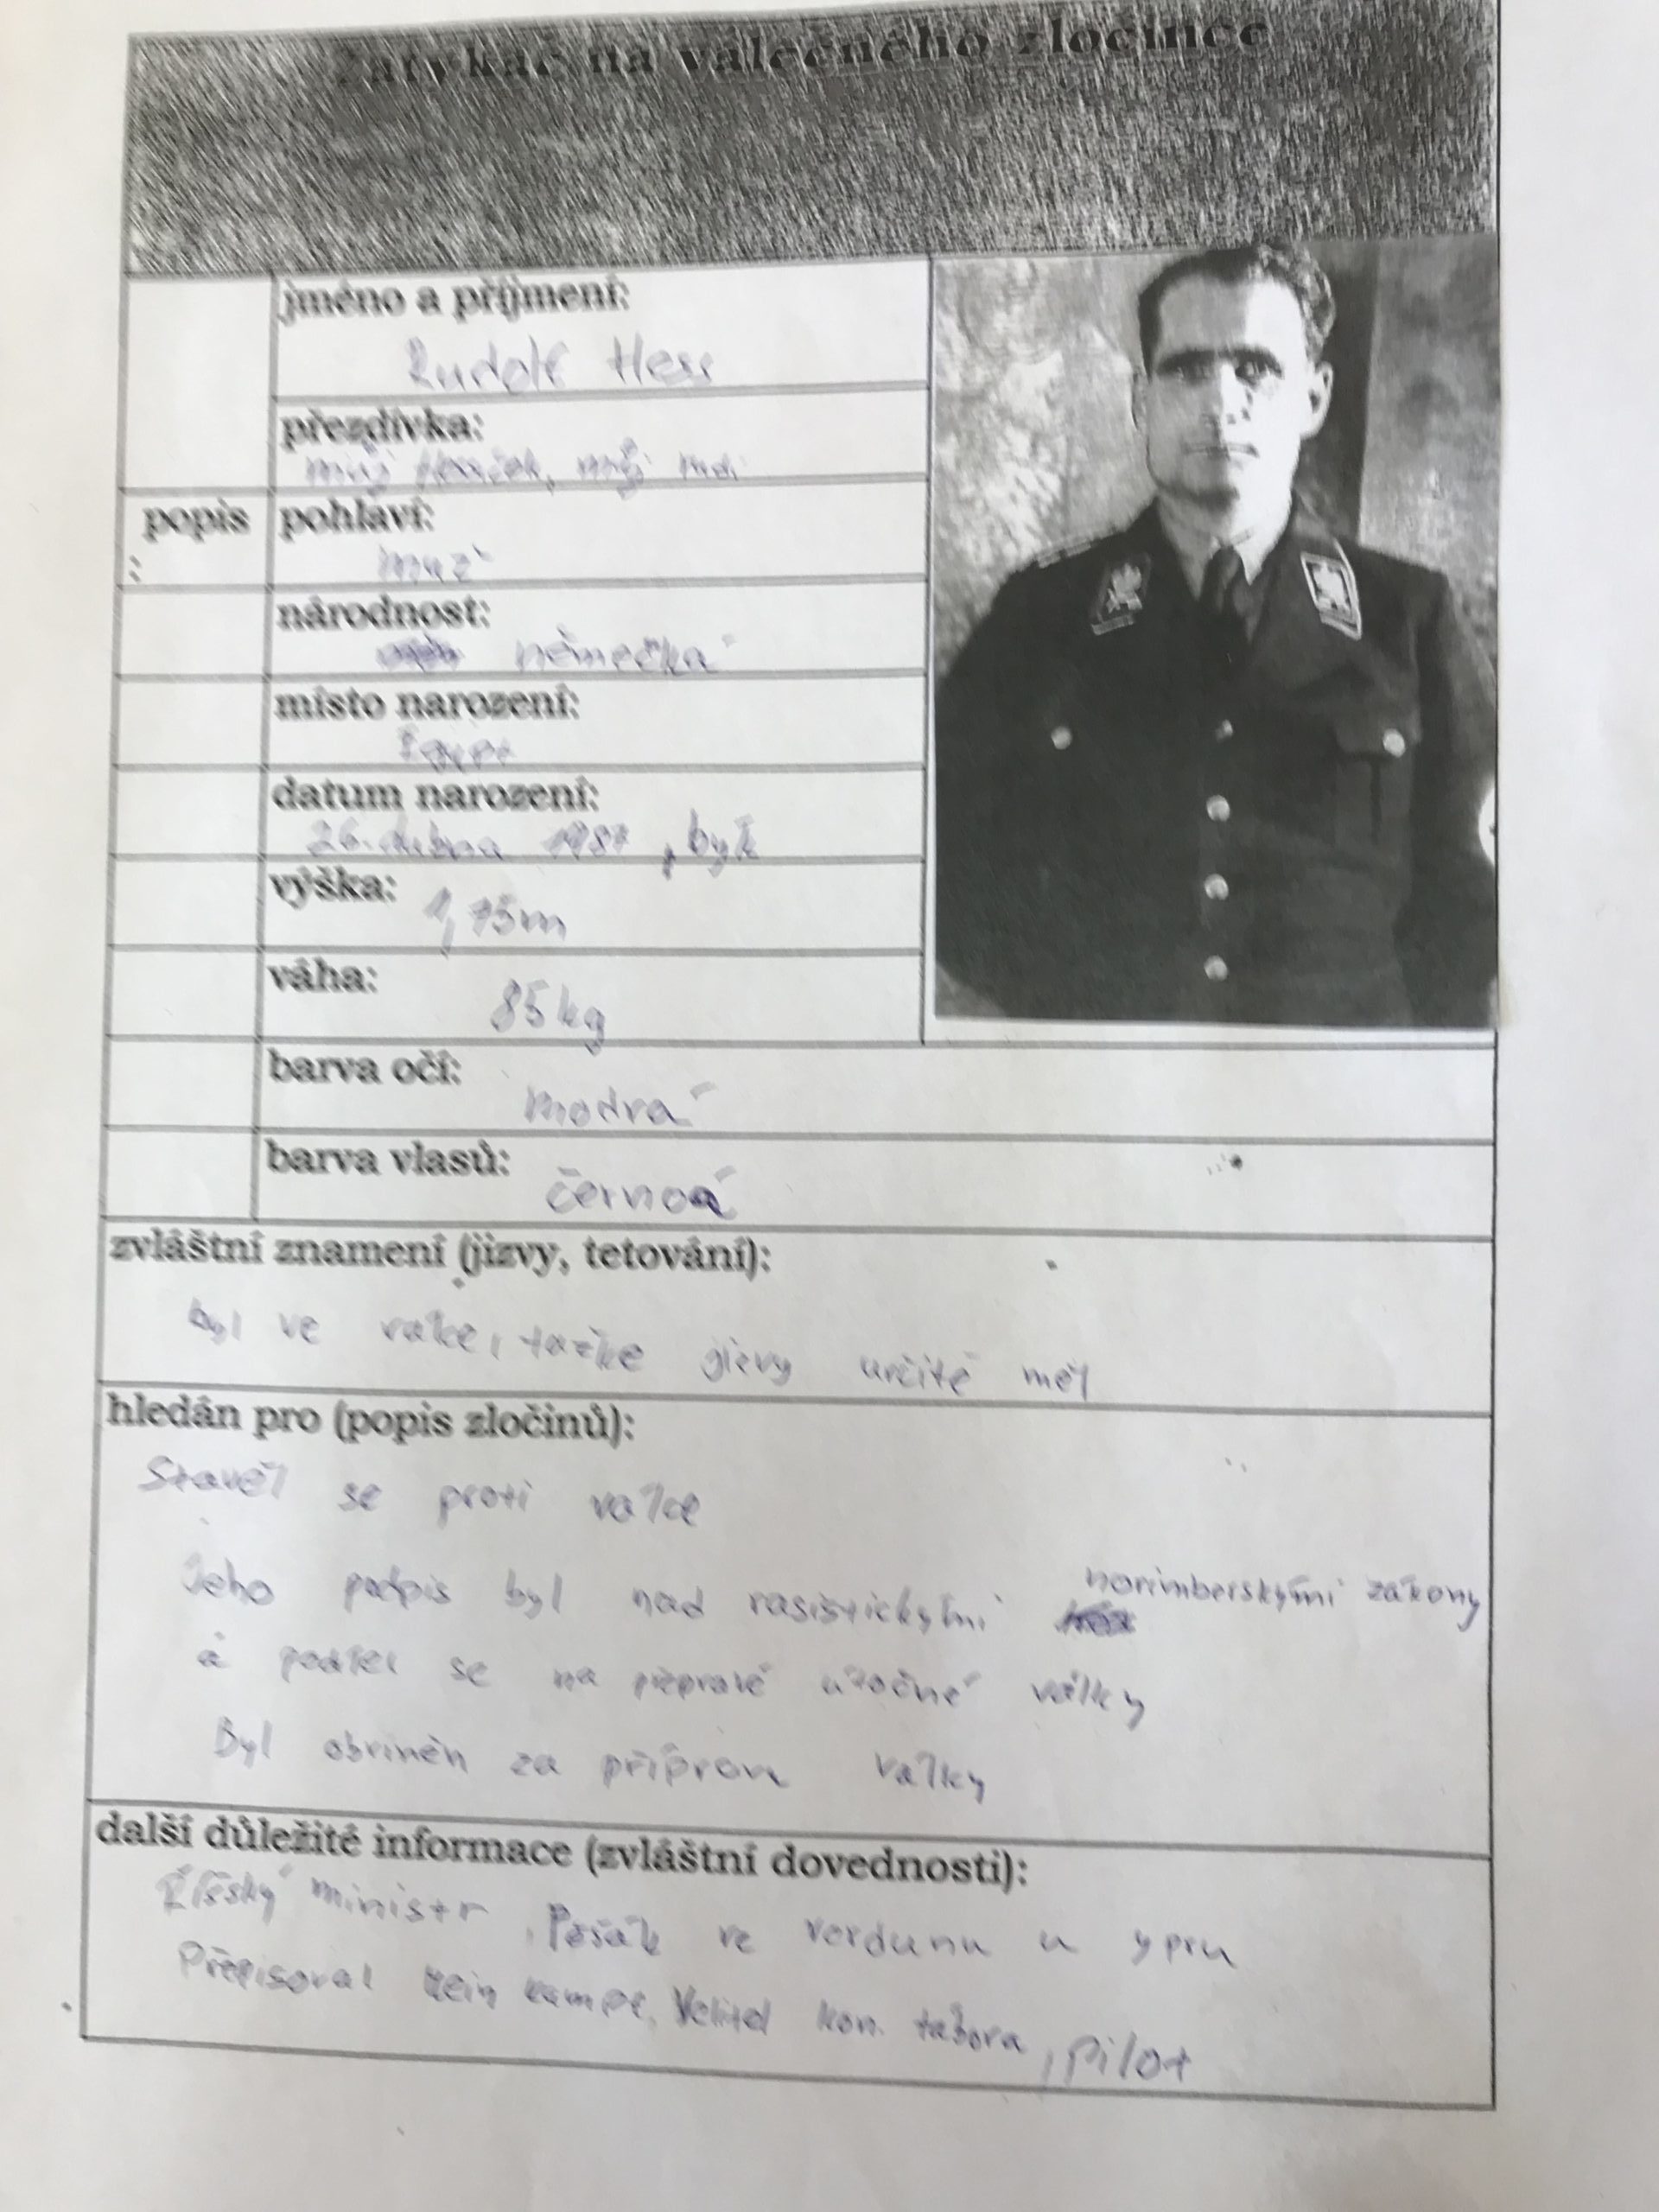 Zatykač na válečného zločince
jméno a příjmení:
Rudolf Hess
přezdívka:
můj Hesíček, můj Rudi
popis
:
pohlaví:
muž
národnost:
německá
místo narození:
Egypt
datum narození:
26. dubna 1987, býk
výška: 1,75m
váha: 85kg
barva očí: modrá
barva vlasů: černá
zvláštní znamení (jizvy, tetování):
byl ve válce, takže gizvy určitě měl
hledán pro (popis zločinů):
Stavěl se proti válce
Jeho podpis byl nad rasistickými norimberskými zákony
a podílel se na útočné války
Byl obviněn za přípravu války
další důležité informace (zvláštní dovednosti):
Říšský ministr, Pěšák ve verdunu u ypru
Přepisoval kampf, Velitel kon. tábora, pilot